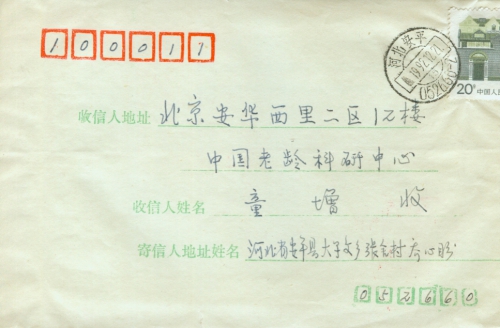 100011
河北安平
052656
20分 中国人民
收信人地址 北京安华西里二区12楼
中国老龄科研中心
收信人姓名 童增 收
寄信人地址姓名 河北省安平县大子文乡张舍村
052660